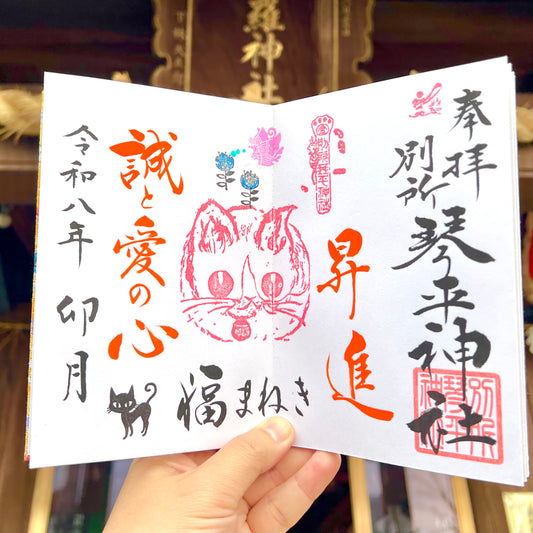 羅神社
奉拝
別所
琴平神社
昇進
福まねき
誠と愛の心
令和八年
卯月